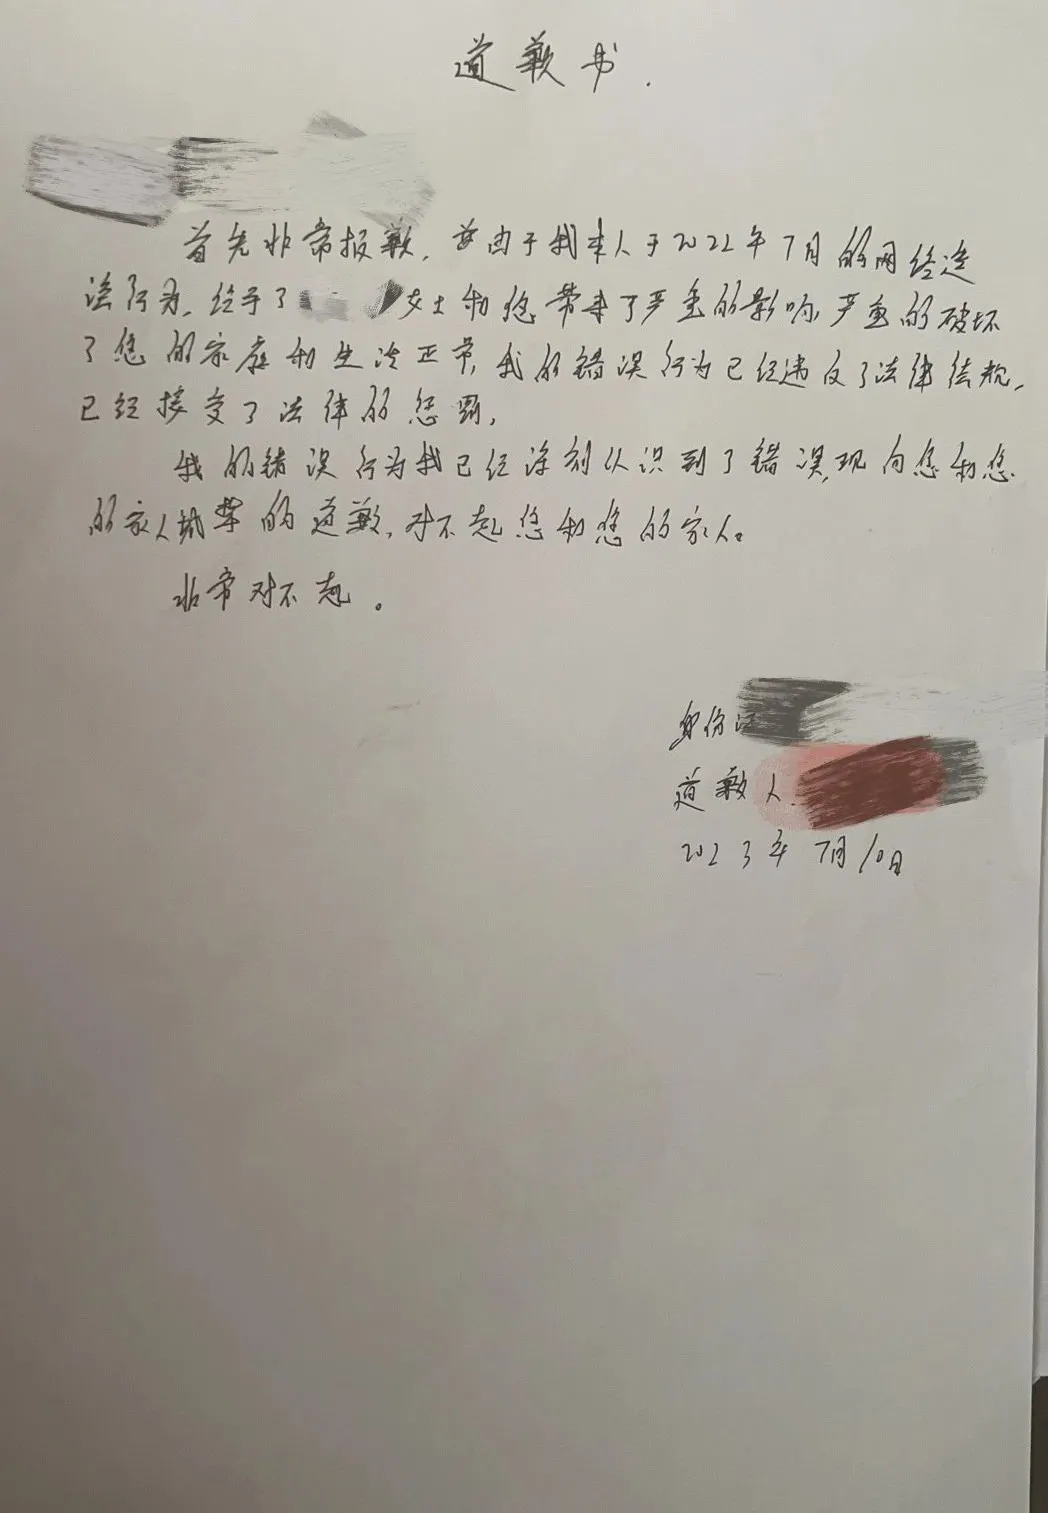 道歉书.
首先非常报歉,由于我本人于2022年7月的网络违
法行为,给于了女士和您带来了严重的影响,严重的破坏
了您的家庭和生活正常,我的错误行为已经违反了法律法规,
已经接受了法律的惩罚,
我的错误行为我已经深刻认识到了错误,现向您和您
的家人诚挚的道歉,对不起您和您的家人。
非常对不起。
身份证
道歉人
2023年7月10日